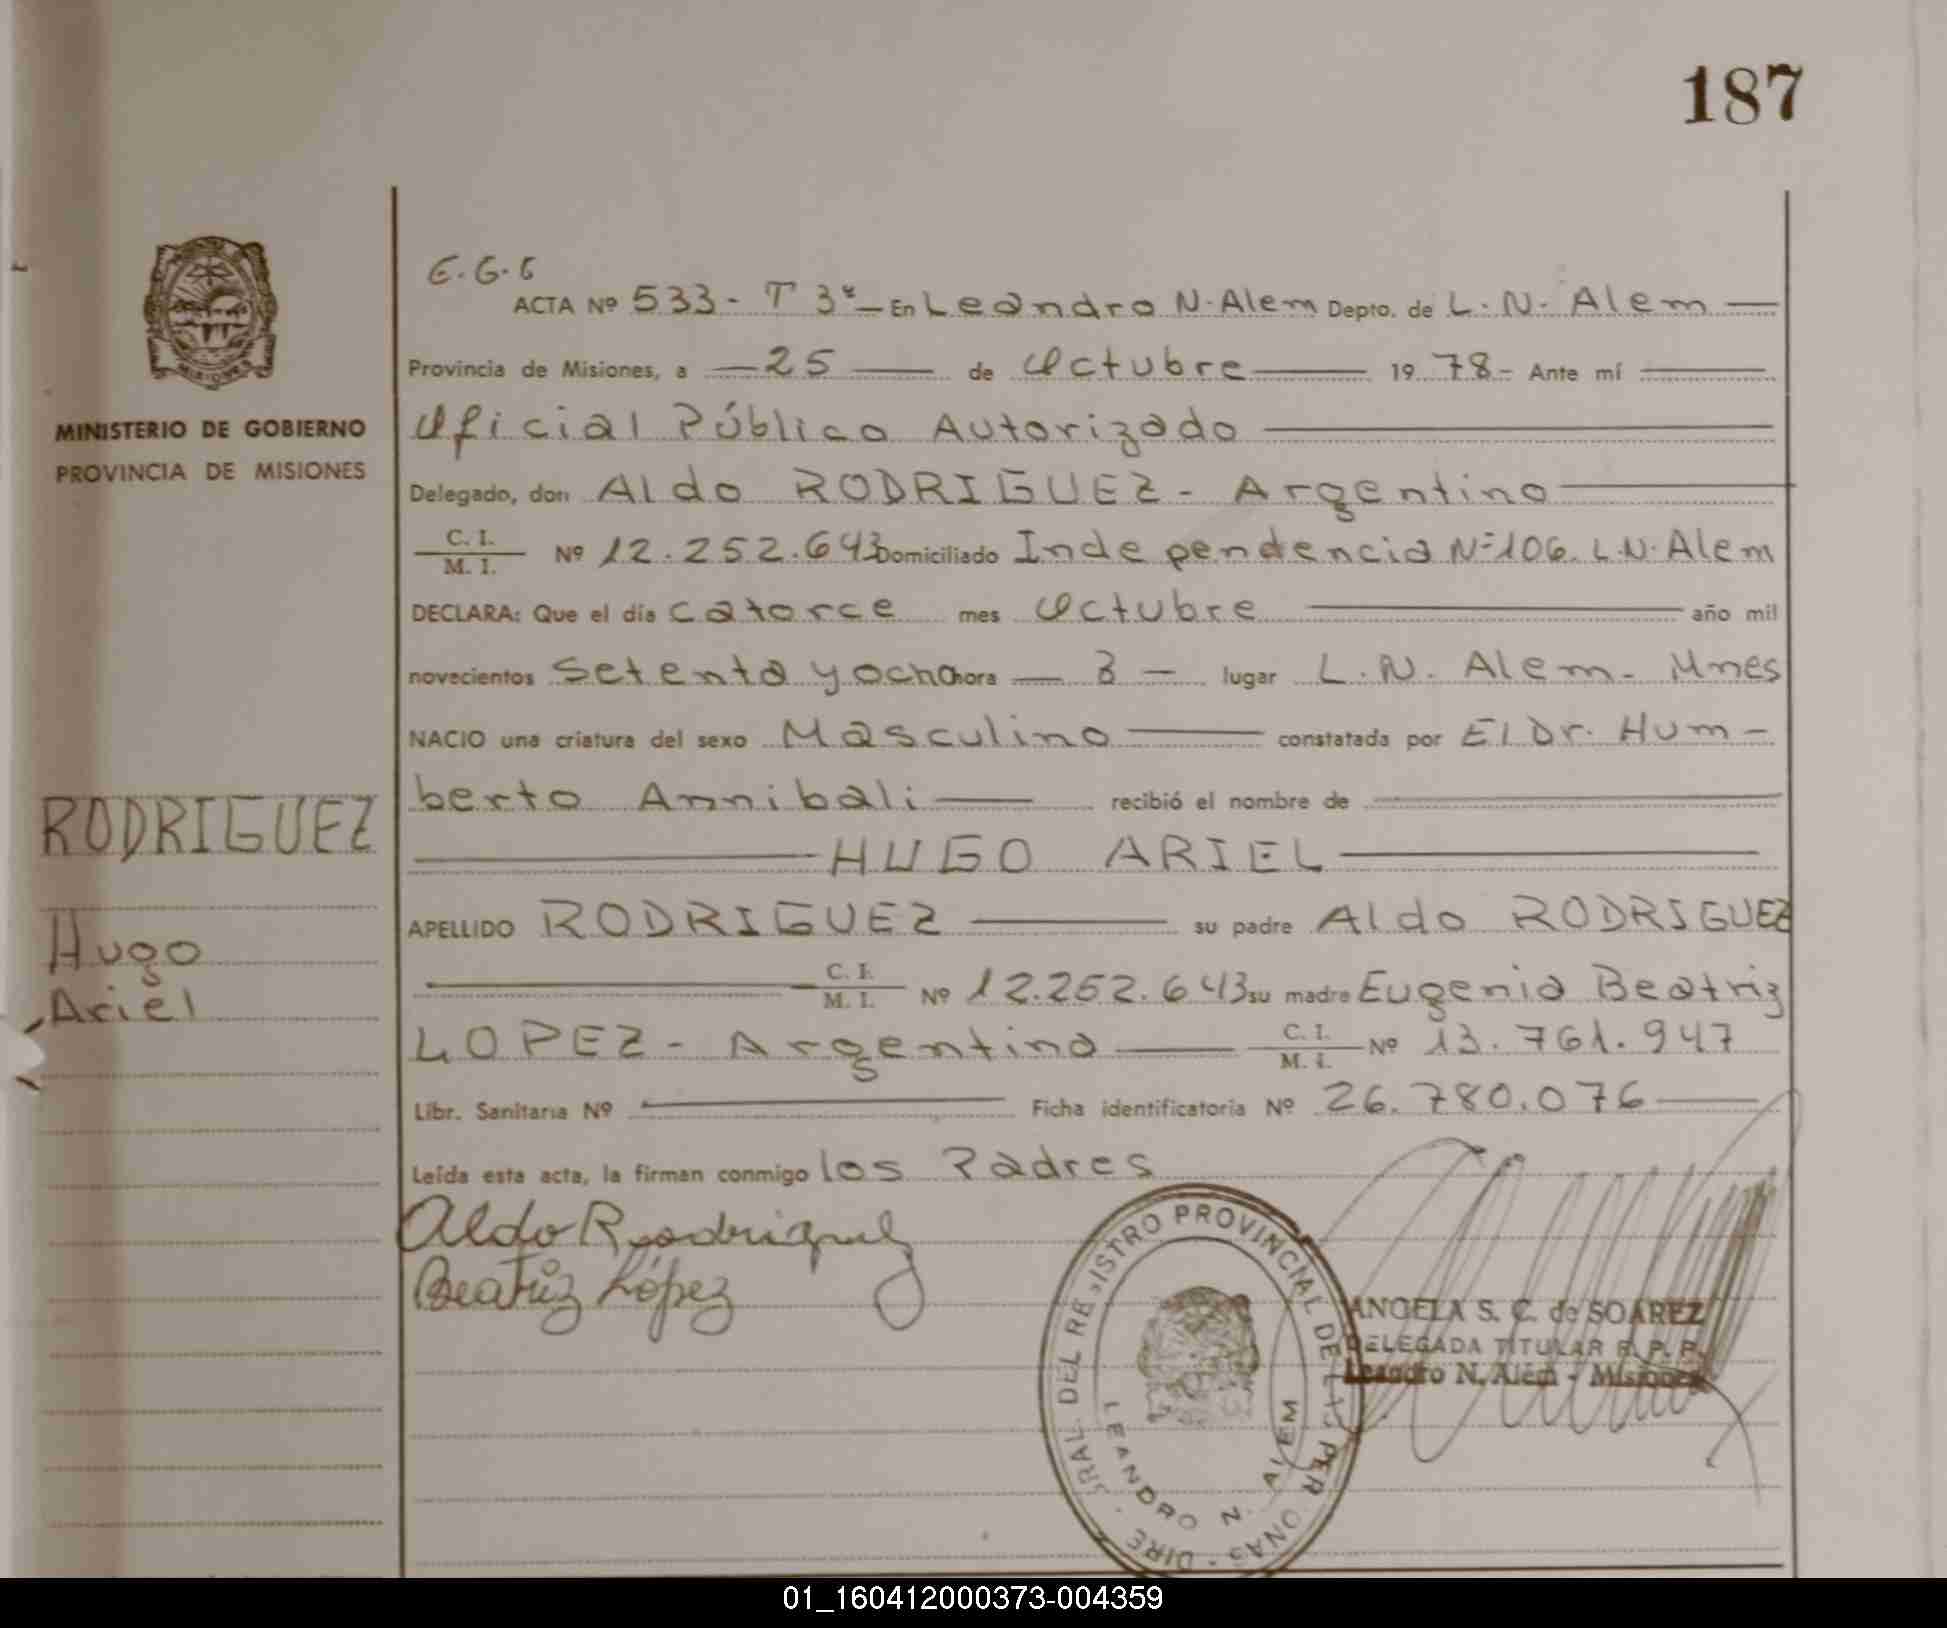 187
E.G.G
ACTA Nº 533- T 3º - En Leandro N. Alem Depto. de L. N. Alem
Provincia de Misiones, a 25 de Octubre 1978- Ante mí
MINISTERIO DE GOBIERNO
PROVINCIA DE MISIONES
Oficial Público Autorizado
Delegado, don Aldo RODRIGUEZ - Argentino
C. I.
M. I. Nº 12.252.643 Domiciliado Independencia Nº 106. L.N. Alem
DECLARA: Que el día catorce mes Octubre año mil
novecientos setenta y ocho hora 3 - lugar L. N. Alem - Mnes
NACIO una criatura del sexo Masculino constatada por El Dr. Hum-
berto Annibali recibió el nombre de
HUGO ARIEL
RODRIGUEZ
Hugo
Ariel
APELLIDO RODRIGUEZ su padre Aldo RODRIGUEZ
C. I.
M. I. Nº 12.252.643 su madre Eugenia Beatriz
LOPEZ - Argentina C. I.
M. I. Nº 13.761.947
Libr. Sanitaria Nº Ficha identificatoria Nº 26.780.076
Leída esta acta, la firman conmigo los Padres
Aldo Rodriguez
Beatriz López
ANGELA S. C. de SOAREZ
DELEGADA TITULAR R. P. P.
Leandro N. Alem - Misiones
LEANDRO N. ALEM
01_160412000373-004359